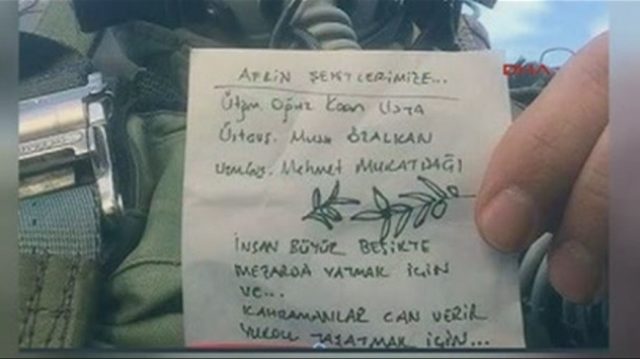 DHA
AFRİN ŞEHİTLERİMİZE...
Ütğm. Oğuz Kaan Usta
Üstçvş. Musa ÖZALKAN
Uzm.Çvş. Mehmet MURATDAĞI
İNSAN BÜYÜR BEŞİKTE
MEZARDA YATMAK İÇİN
VE...
KAHRAMANLAR CAN VERİR
YURDU YAŞATMAK İÇİN...